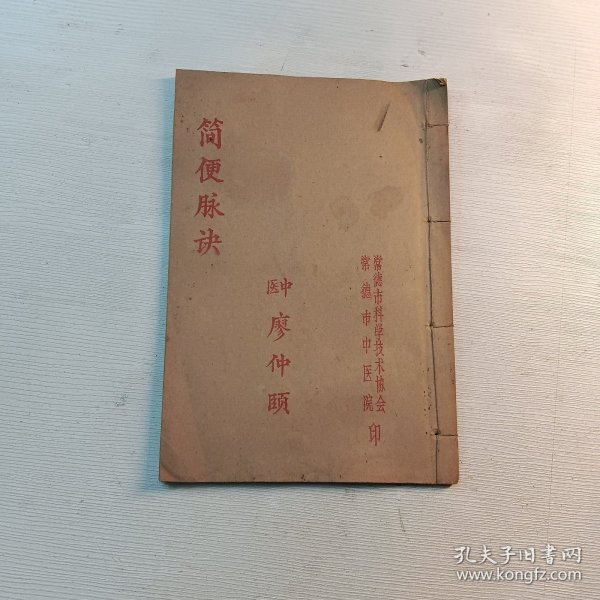 简便脉诀
中医
廖仲颐
常德市科学技术协会
常德市中医院
印
孔夫子旧书网
www.kongfz.com